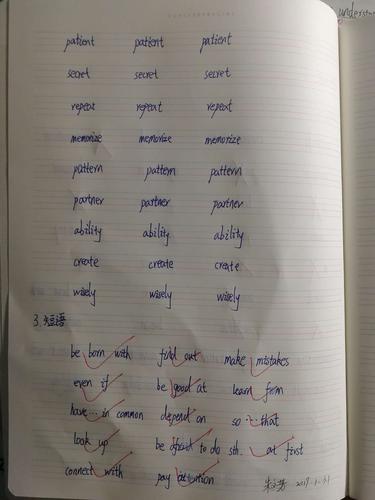 patient patient patient
secret secret secret
repeat repeat repeat
memorize memorize memorize
pattern pattern pattern
partner partner partner
ability ability ability
create create create
wisely wisely wisely
3. 短语
be born with find out make mistakes
even if be good at learn from
have... in common depend on so that
look up be afraid to do sth. at first
connect with pay attention